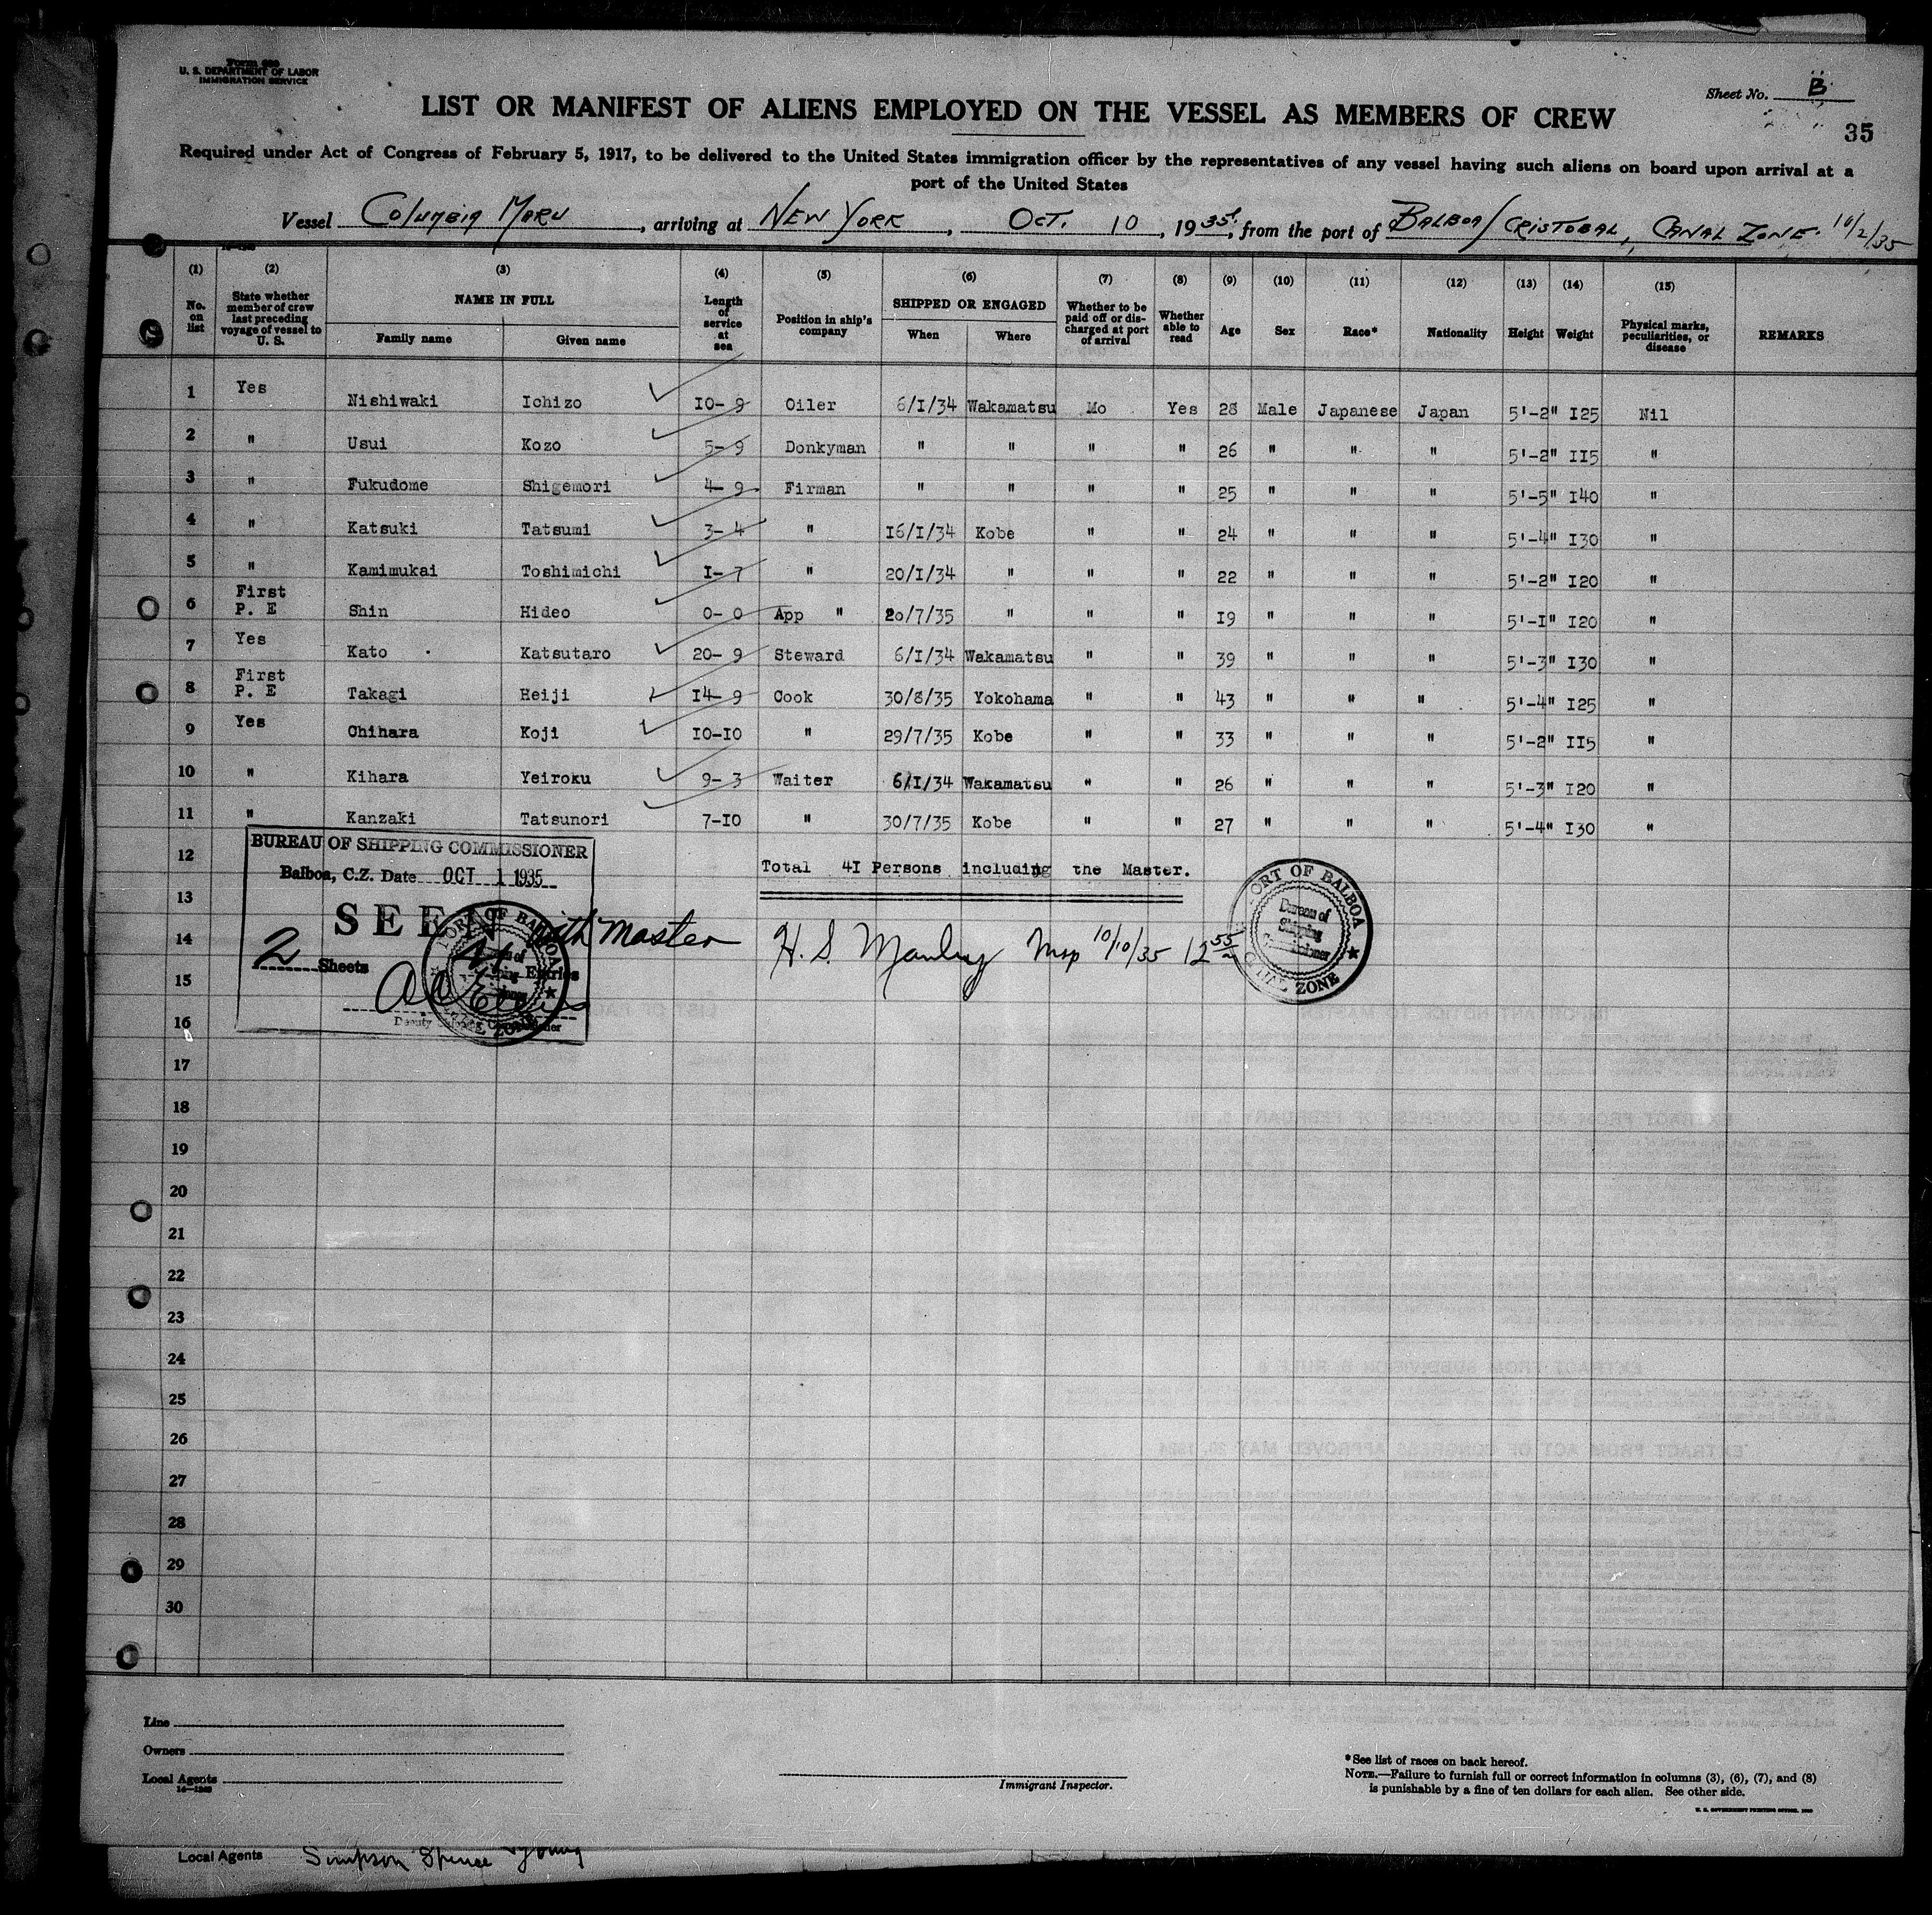 Form 689
U. S. DEPARTMENT OF LABOR
IMMIGRATION SERVICE
Sheet No. B
35
LIST OR MANIFEST OF ALIENS EMPLOYED ON THE VESSEL AS MEMBERS OF CREW
Required under Act of Congress of February 5, 1917, to be delivered to the United States immigration officer by the representatives of any vessel having such aliens on board upon arrival at a
port of the United States
Vessel Columbia Maru, arriving at New York, Oct. 10, 1935, from the port of Balboa/Cristobal, Canal Zone. 10/2/35
(1) (2) (3) (4) (5) (6) (7) (8) (9) (10) (11) (12) (13) (14) (15)
No. on list | State whether member of crew last preceding voyage of vessel to U. S. | NAME IN FULL Family name Given name | Length of service at sea | Position in ship's company | SHIPPED OR ENGAGED When Where | Whether to be paid off or discharged at port of arrival | Whether able to read | Age | Sex | Race* | Nationality | Height | Weight | Physical marks, peculiarities, or disease | REMARKS
1 Yes Nishiwaki Ichizo 10-9 Oiler 6/I/34 Wakamatsu Mo Yes 28 Male Japanese Japan 5'-2" I25 Nil
2 " Usui Kozo 5-9 Donkyman " " " " 26 " " " 5'-2" II5 "
3 " Fukudome Shigemori 4-9 Firman " " " " 25 " " " 5'-5" I40 "
4 " Katsuki Tatsumi 3-4 " I6/I/34 Kobe " " 24 " " " 5'-4" I30 "
5 " Kamimukai Toshimichi I-7 " 20/I/34 " " " 22 " " " 5'-2" I20 "
6 First P. E Shin Hideo 0-0 App " 20/7/35 " " " I9 " " " 5'-I" I20 "
7 Yes Kato Katsutaro 20-9 Steward 6/I/34 Wakamatsu " " 39 " " " 5'-3" I30 "
8 First P. E Takagi Heiji I4-9 Cook 30/8/35 Yokohama " " 43 " " " 5'-4" I25 "
9 Yes Chihara Koji I0-I0 " 29/7/35 Kobe " " 33 " " " 5'-2" II5 "
10 " Kihara Yeiroku 9-3 Waiter 6/I/34 Wakamatsu " " 26 " " " 5'-3" I20 "
11 " Kanzaki Tatsunori 7-I0 " 30/7/35 Kobe " " 27 " " " 5'-4" I30 "
12
Total 4I Persons including the Master.
13
14
15
16
17
18
19
20
21
22
23
24
25
26
27
28
29
30
BUREAU OF SHIPPING COMMISSIONER
Balboa, C.Z. Date OCT 1 1935
SEEN with master
2 Sheets 41 Entries
Deputy Shipping Commissioner
PORT OF BALBOA
Bureau of
Shipping
Commissioner
CANAL ZONE
10/10/35 12 55
PORT OF BALBOA
Bureau of
Shipping
Commissioner
CANAL ZONE
Line
Owners
Local Agents
Immigrant Inspector.
*See list of races on back hereof.
NOTE.—Failure to furnish full or correct information in columns (3), (6), (7), and (8)
is punishable by a fine of ten dollars for each alien. See other side.
Local Agents Simpson Spence & Young